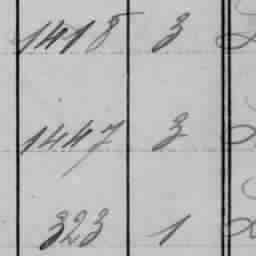 1418 3
1447 3
323 1